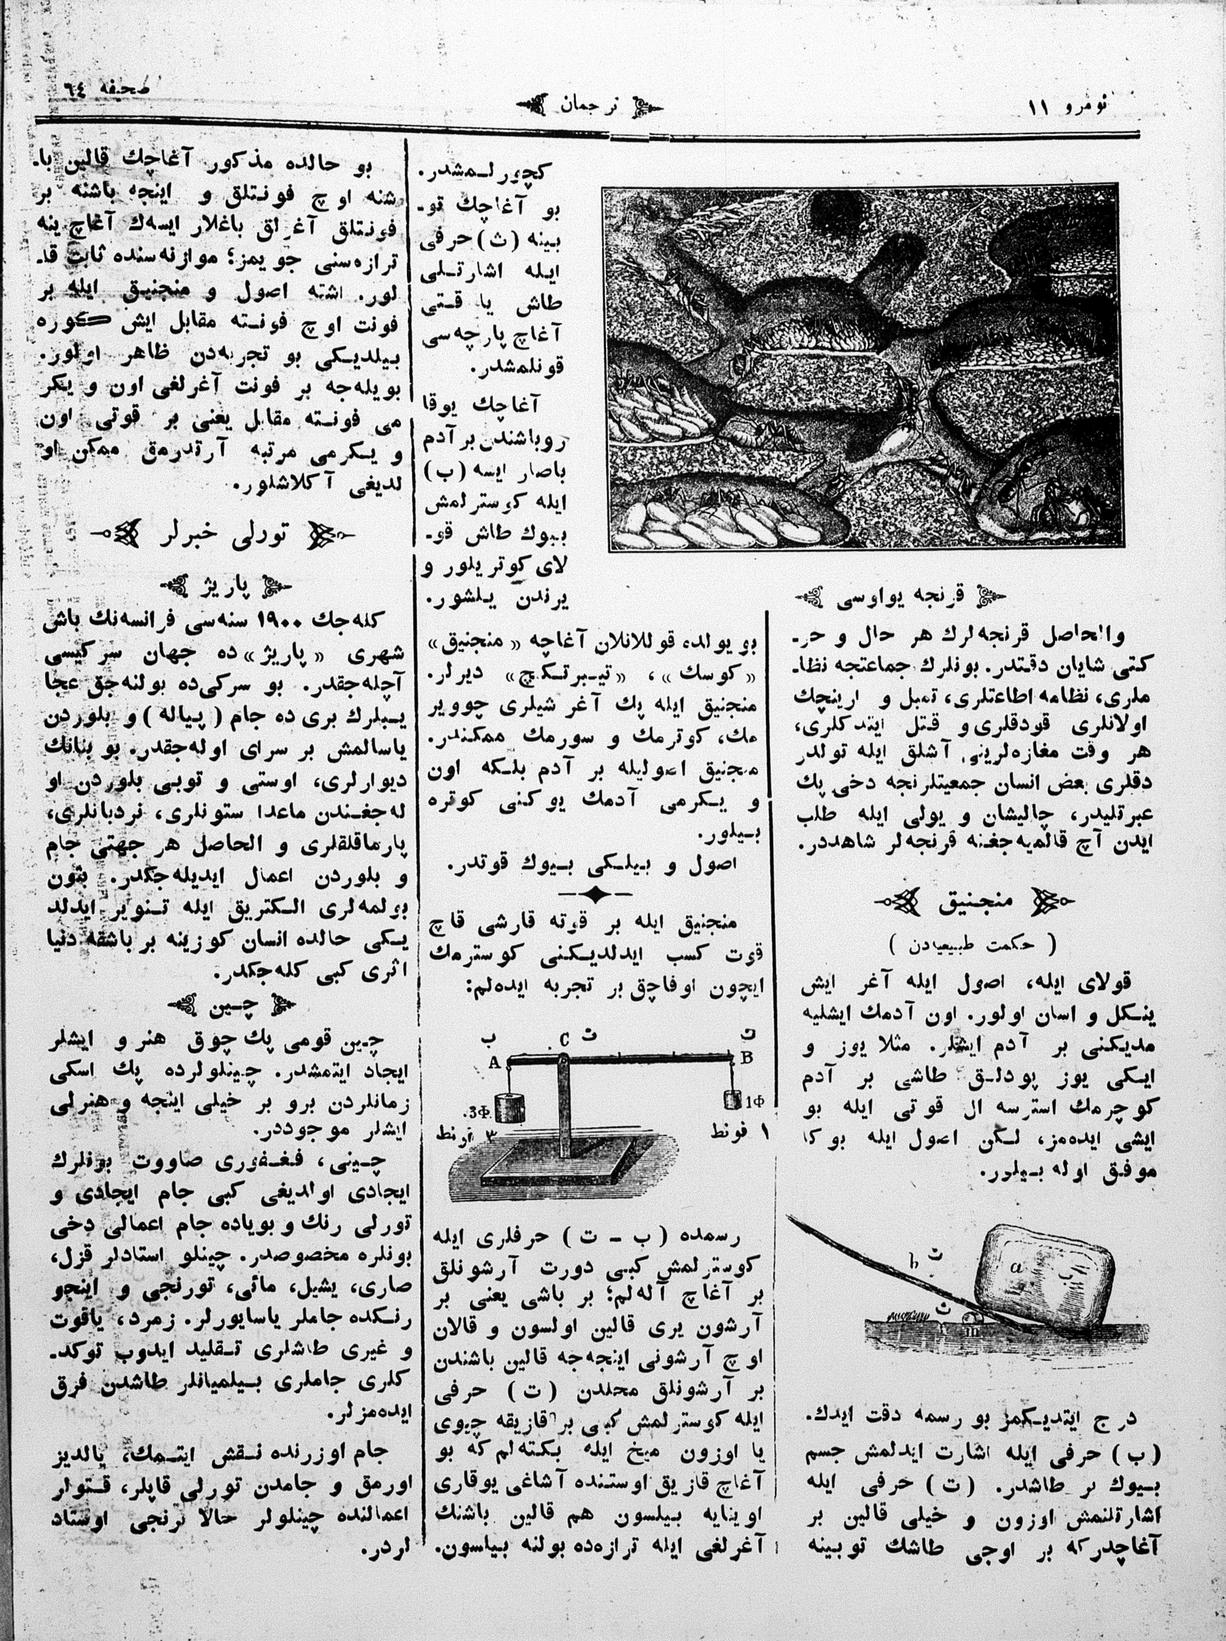 نومرو ١١
ترجمان
صحیفه ٦٤
قرنجه یواوسی
والحاصل قرنجه‌لرك هر حال و حر-
كتی شایان دقتدر. بونلرك جماعتجه نظا-
ملری، نظامه اطاعتلری، تمبل و ارینچك
اولانلری قودقلری و قتل ایتدكلری،
هر وقت مغازه‌لرینی آشلق ایله تولدر
دقلری بعض انسان جمعیتلرنجه دخی پك
عبرتلیدر، چالیشان و یولی ایله طلب
ایدن آچ قالمیه‌جغنه قرنجه‌لر شاهددر.
منجنیق
( حكمت طبیعیادن )
قولای ایله، اصول ایله آغر ایش
ینكل و اسان اولور. اون آدمك ایشلیه
مدیكنی بر آدم ایشلر. مثلا یوز و
ایكی یوز پودلق طاشی بر آدم
كوچرمك استرسه ال قوتی ایله بو
ایشی ایده‌مز، لكن اصول ایله بوكا
موفق اوله بیلور.
ت
h
a
ب
ث
m
درج ایتدیكمز بو رسمه دقت ایدك.
(ب) حرفی ایله اشارت ایدلمش جسم
بیوك بر طاشدر. (ت) حرفی ایله
اشارتلنمش اوزون و خیلی قالین بر
آغاچدركه بر اوجی طاشك توبینه
كچورلمشدر.
بو آغاچك تو-
بینه (ث) حرفی
ایله اشارتلی
طاش یا قتی
آغاچ پارچه‌سی
قونلمشدر.
آغاچك یوقا
روباشندن بر آدم
باصار ایسه (ب)
ایله كوسترلمش
بیوك طاش قو-
لای كوتریلور و
یرندن یلشور.
بو یولده قوللانلان آغاچه «منجنیق»
«كوسك»، «تیبرتكچ» دیرلر.
منجنیق ایله پك آغر شیلری چوویر
مك، كوترمك و سورمك ممكندر.
منجنیق اصولیله بر آدم بلكه اون
و یكرمی آدمك یوكنی كوتره
بیلور.
اصول و بیلكی بیوك قوتدر.
منجنیق ایله بر قوته قارشی قاچ
قوت كسب ایدلدیكنی كوسترمك
ایچون اوفاچق بر تجربه ایده‌لم:
ب
ث
ت
A
C
B
3Ф.
1Ф
٣ فونط
١ فونط
رسمده (ب - ت) حرفلری ایله
كوسترلمش كبی دورت آرشونلق
بر آغاچ آله‌لم؛ بر باشی یعنی بر
آرشون یری قالین اولسون و قالان
اوچ آرشونی اینجه‌جه قالین باشندن
بر آرشونلق محلدن (ت) حرفی
ایله كوسترلمش كبی بر قازیقه چیوی
یا اوزون میخ ایله بكته‌لم كه بو
آغاچ قازیق اوستنده آشاغی یوقاری
اوینایه بیلسون هم قالین باشنك
آغرلغی ایله ترازه‌ده بولنه بیلسون.
بو حالده مذكور آغاچك قالین با-
شنه اوچ فونتلق و اینجه باشنه بر
فونتلق آغرلق باغلار ایسه‌ك آغاچ ینه
ترازه‌سنی جویمز؛ موازنه‌سنده ثابت قا-
لور. اشته اصول و منجنیق ایله بر
فونت اوچ فونته مقابل ایش كوره
بیلدیكی بو تجربه‌دن ظاهر اولور.
بویله‌جه بر فونت آغرلغی اون و یكر
می فونته مقابل یعنی بر قوتی اون
و یكرمی مرتبه آرتدرمق ممكن او
لدیغی آكلاشلور.
تورلی خبرلر
پاریژ
كله‌جك ١٩٠٠ سنه‌سی فرانسه‌نك باش
شهری «پاریژ» ده جهان سركیسی
آچله‌جقدر. بو سركی‌ده بولنه‌جق عجا
یبلرك بری ده جام (پیاله) و بلوردن
یاسالمش بر سرای اوله‌جقدر. بو بنانك
دیوارلری، اوستی و توبی بلوردن او
له‌جغندن ماعدا ستونلری، نردبانلری،
پارماقلقلری و الحاصل هر جهتی جام
و بلوردن اعمال ایدیله‌جكدر. بتون
بولمه‌لری الكتریق ایله تنویر ایدلد
یكی حالده انسان كوزینه بر باشقه دنیا
اثری كبی كله‌جكدر.
چین
چین قومی پك چوق هنر و ایشلر
ایجاد ایتمشدر. چینلولرده پك اسكی
زمانلردن برو بر خیلی اینجه و هنرلی
ایشلر موجوددر.
چینی، فغفوری صاووت بونلرك
ایجادی اولدیغی كبی جام ایجادی و
تورلی رنك و بویاده جام اعمالی دخی
بونلره مخصوصدر. چینلو استادلر قزل،
صاری، یشیل، مائی، تورنجی و اینجو
رنكده جاملر یاسایورلر. زمرد، یاقوت
و غیری طاشلری تقلید ایدوب توكد-
كلری جاملری بیلمیانلر طاشدن فرق
ایده‌مزلر.
جام اوزرنده نقش ایتمك، یالدیز
اورمق و جامدن تورلی قاپلر، قتولر
اعمالنده چینلولر حالا برنجی اوستاد
لردر.